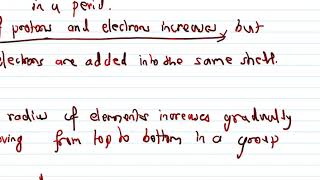 in a perid.
f protons and electrons increases, but
electrons are added into the same shell.
radius of elements increases gradually
oving from top to bottom in a group